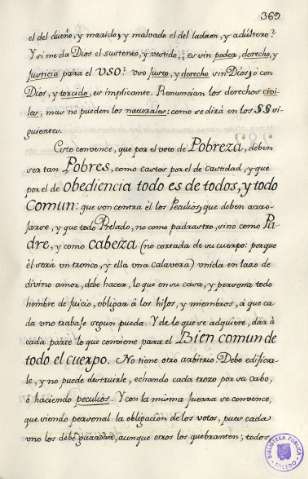 369
el del dueño, y marido, y malvado el del ladron, y adultero?
Y si me da Dios el sustento, y vestido, es sin poder, derecho, y
justicia para el USO? uso justo, y derecho sin Dios; o con
Dios, y torcido, es implicante. Renuncian los derechos civi-
les, mas no pueden los naturales: como se dirá en los §§ si-
guientes.
Esto convence, que por el voto de Pobreza, deben
ser tan Pobres, como castos por el de castidad, y que
por el de obediencia todo es de todos, y todo
comun: que van contra él los Peculios, que deben arro-
jarse, y que todo Prelado, no como padrastro, sino como Pa-
dre, y como cabeza (no cortada de su cuerpo: porque
él será un tronco, y ella una calavera) unida en lazo de
divino amor, debe hacer, lo que en su casa, y persona todo
hombre de juicio, obligar á los hijos, y miembros, á que ca-
da uno trabaje segun pueda. Y de lo que se adquiere, dár á
cada parte lo que conviene para el Bien comun de
todo el cuerpo. No tiene otro arbitrio. Debe edificar-
le, y no puede destruirle, echando cada trozo por su cabo,
ó haciendo peculios. Y con la misma fuerza se convence,
que siendo personal la obligacion de los votos, pues cada
uno los debe guardar, aunque otros los quebranten; todos
BIBLIOTECA PUBLICA
TOLEDO